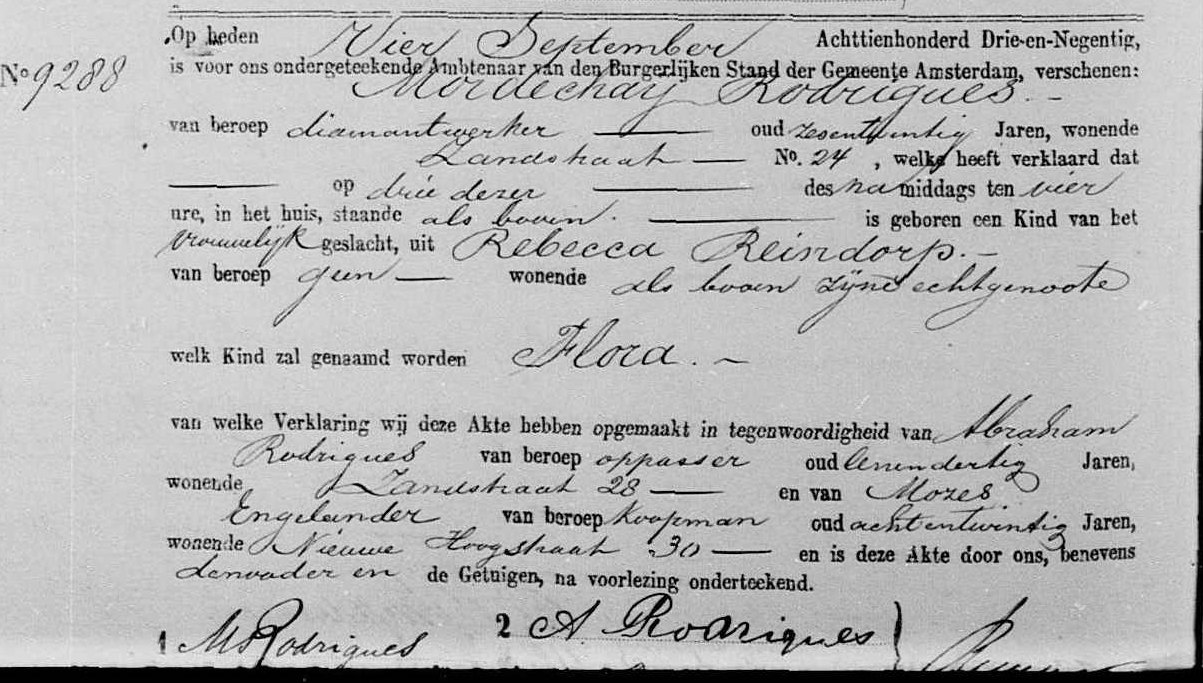 Op heden Vier September Achttienhonderd Drie-en-Negentig,
No 9288 is voor ons ondergeteekende Ambtenaar van den Burgerlijken Stand der Gemeente Amsterdam, verschenen:
Mordechay Rodrigues.
van beroep diamantwerker oud zesentwintig Jaren, wonende
Zandstraat No. 24, welke heeft verklaard dat
op drie dezer des namiddags ten vier
ure, in het huis, staande als boven. is geboren een Kind van het
vrouwelijk geslacht, uit Rebecca Reindorp.
van beroep geen wonende als boven zijne echtgenoote
welk Kind zal genaamd worden Flora.
van welke Verklaring wij deze Akte hebben opgemaakt in tegenwoordigheid van Abraham
Rodrigues van beroep oppasser oud eenendertig Jaren,
wonende Zandstraat 28 en van Mozes
Engelander van beroep Koopman oud achtentwintig Jaren,
wonende Nieuwe Hoogstraat 30 en is deze Akte door ons, benevens
den vader en de Getuigen, na voorlezing onderteekend.
1 M Rodrigues 2 A Rodrigues